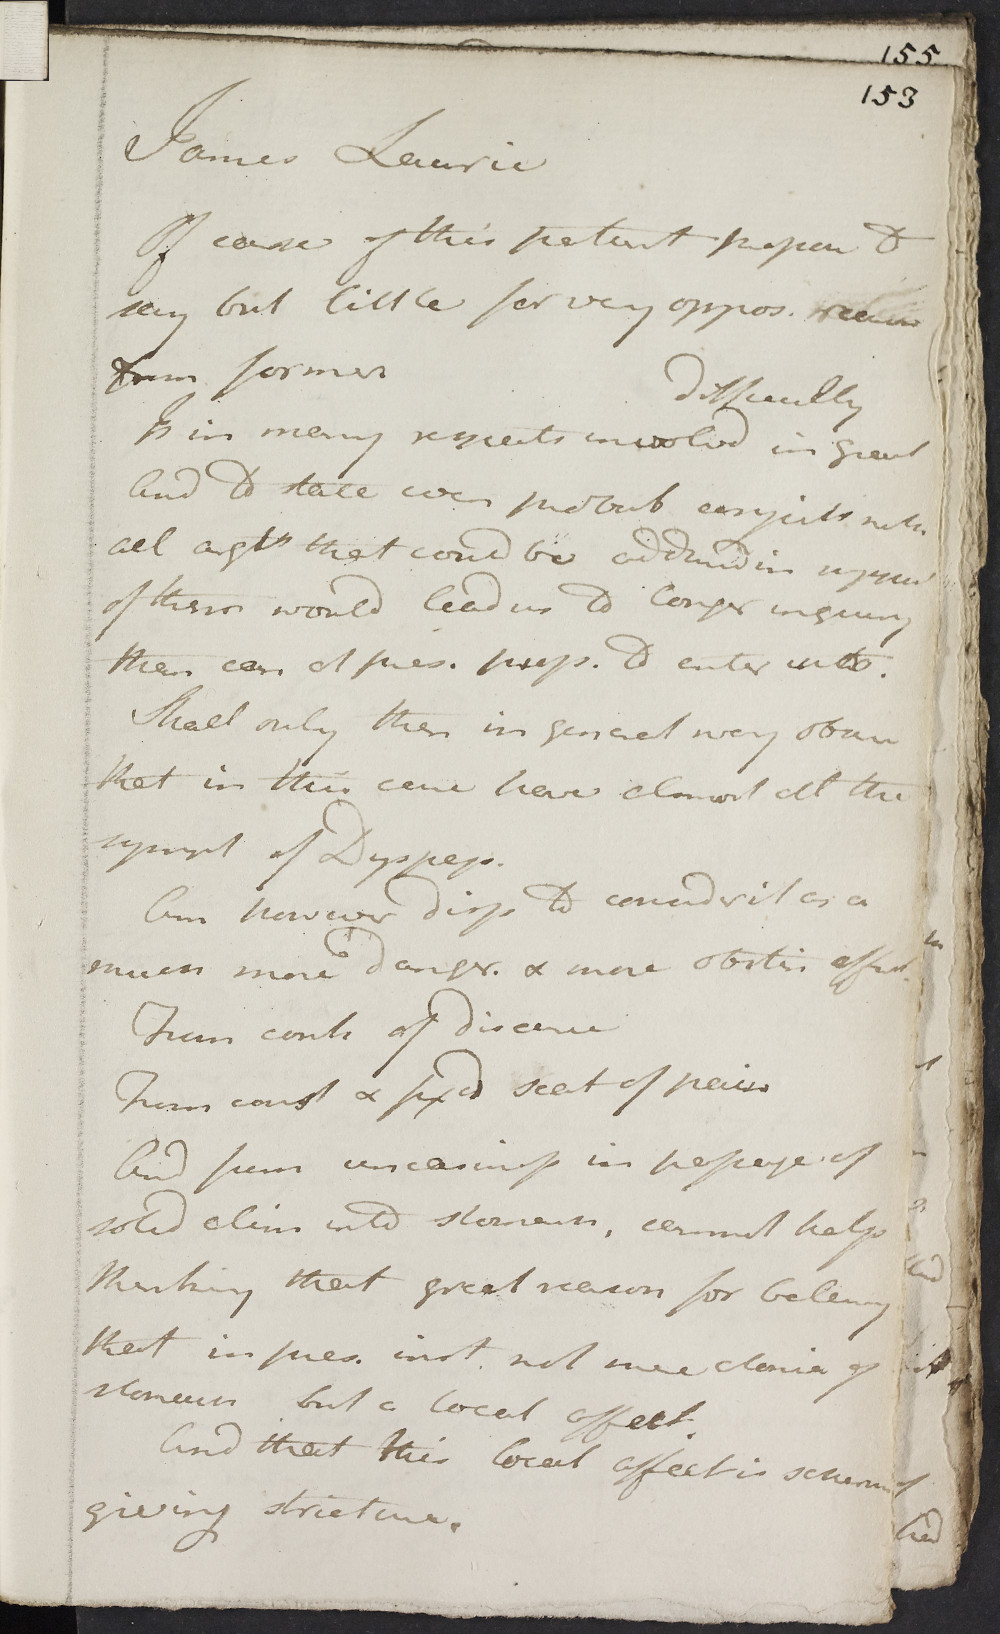 155
153
James Laurie
Of case of this patient propose to
say but little for very oppos. reason
from former
difficulty
Is in many respects involved in great
And to state even probab conjects with
all argts that could be adduced in support
of them would lead us to longer inquiry
than can at pres. prop. to enter into.
Shall only then in general way observe
that in this case have almost all the
sympt of Dyspeps.
Am however disp to consider it as a
much more danger. & more obstin affect.
From cont of disease
From const & fixed seat of pain
And from uneasiness in passage of
solid alim into stomach, cannot help
thinking that great reason for believing
that in pres. inst. not mere atonia of
stomach but a local affect.
And that this local affect is
giving stricture.